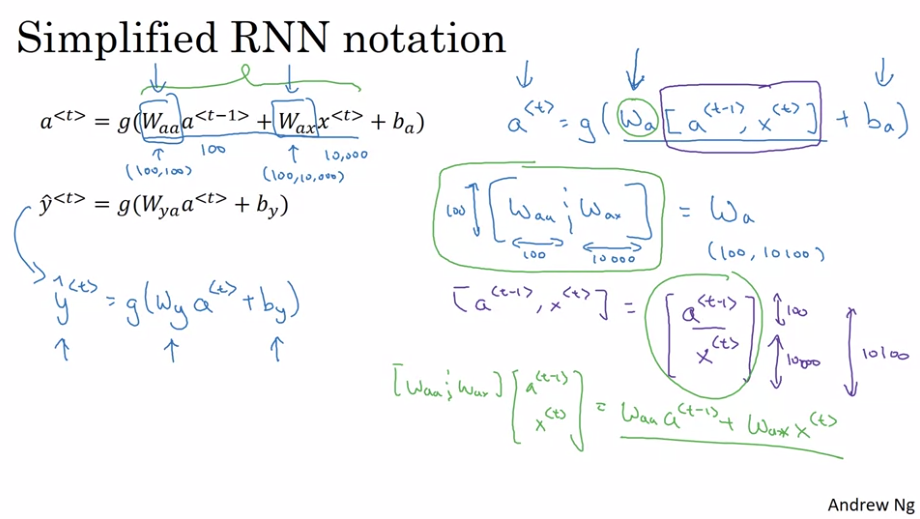 Simplified RNN notation
a^{<t>} = g(W_{aa}a^{<t-1>} + W_{ax}x^{<t>} + b_a)
100 10,000
(100,100) (100,10,000)
ŷ^{<t>} = g(W_{ya}a^{<t>} + b_y)
ŷ^{<t>} = g(W_y a^{<t>} + b_y)
a^{<t>} = g(W_a [a^{<t-1>}, x^{<t>}] + b_a)
100 [W_{aa} ; W_{ax}] = W_a
100 10000 (100, 10100)
[a^{<t-1>}, x^{<t>}] = [a^{<t-1>} 100
x^{<t>}] 10000 10100
[W_{aa} ; W_{ax}] [a^{<t-1>}
x^{<t>}] = W_{aa} a^{<t-1>} + W_{ax} x^{<t>}
Andrew Ng